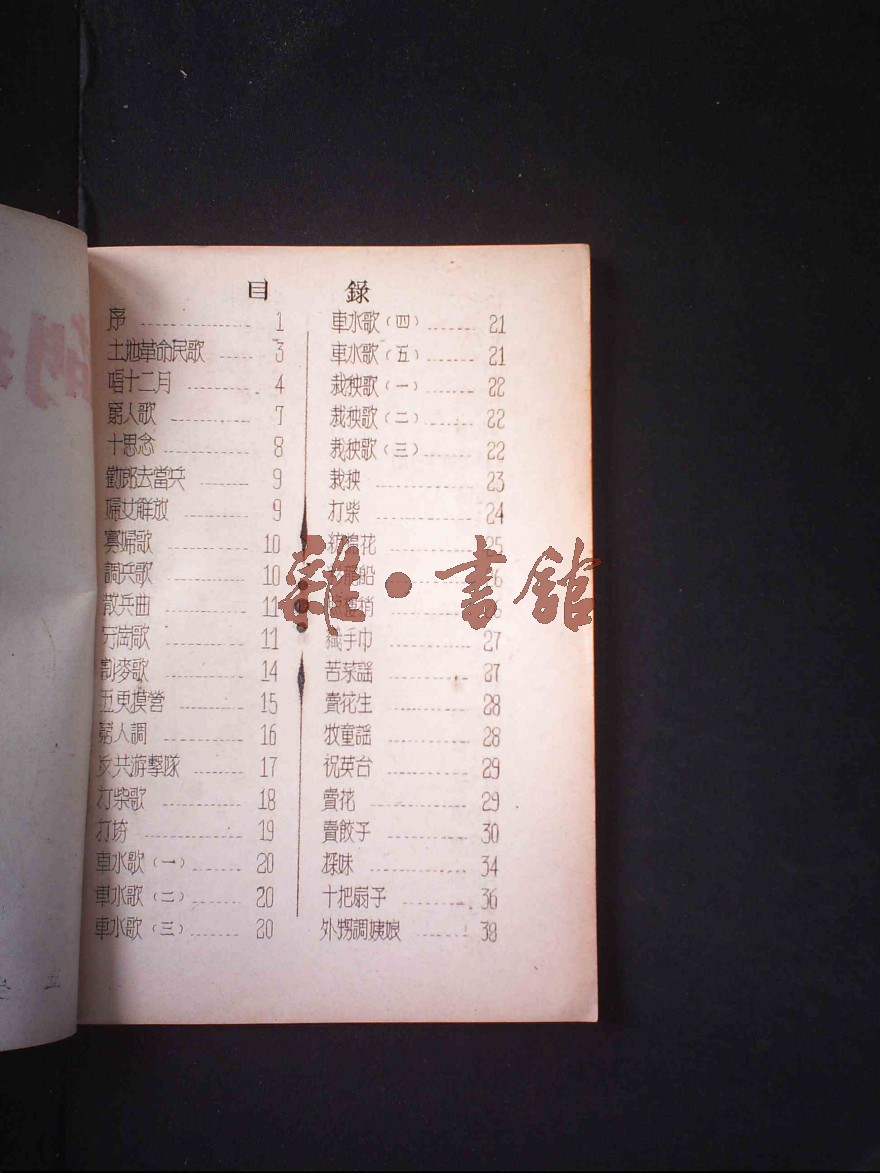 目 錄
序 1
土地革命民歌 3
唱十二月 4
窮人歌 7
十思念 8
勸郎去當兵 9
婦女解放 9
寡婦歌 10
調兵歌 10
散兵曲 11
歌 11
割麥歌 14
五更摸營 15
窮人調 16
反共游擊隊 17
打柴歌 18
打 19
車水歌(一) 20
車水歌(二) 20
車水歌(三) 20
車水歌(四) 21
車水歌(五) 21
栽秧歌(一) 22
栽秧歌(二) 22
栽秧歌(三) 22
栽秧 23
打柴 24
棉花 25
船 26
織手巾 27
苦菜謠 27
賣花生 28
牧童謠 28
祝英台 29
賣花 29
賣餃子 30
探妹 34
十把扇子 36
外甥調姨娘 38
雜·書館